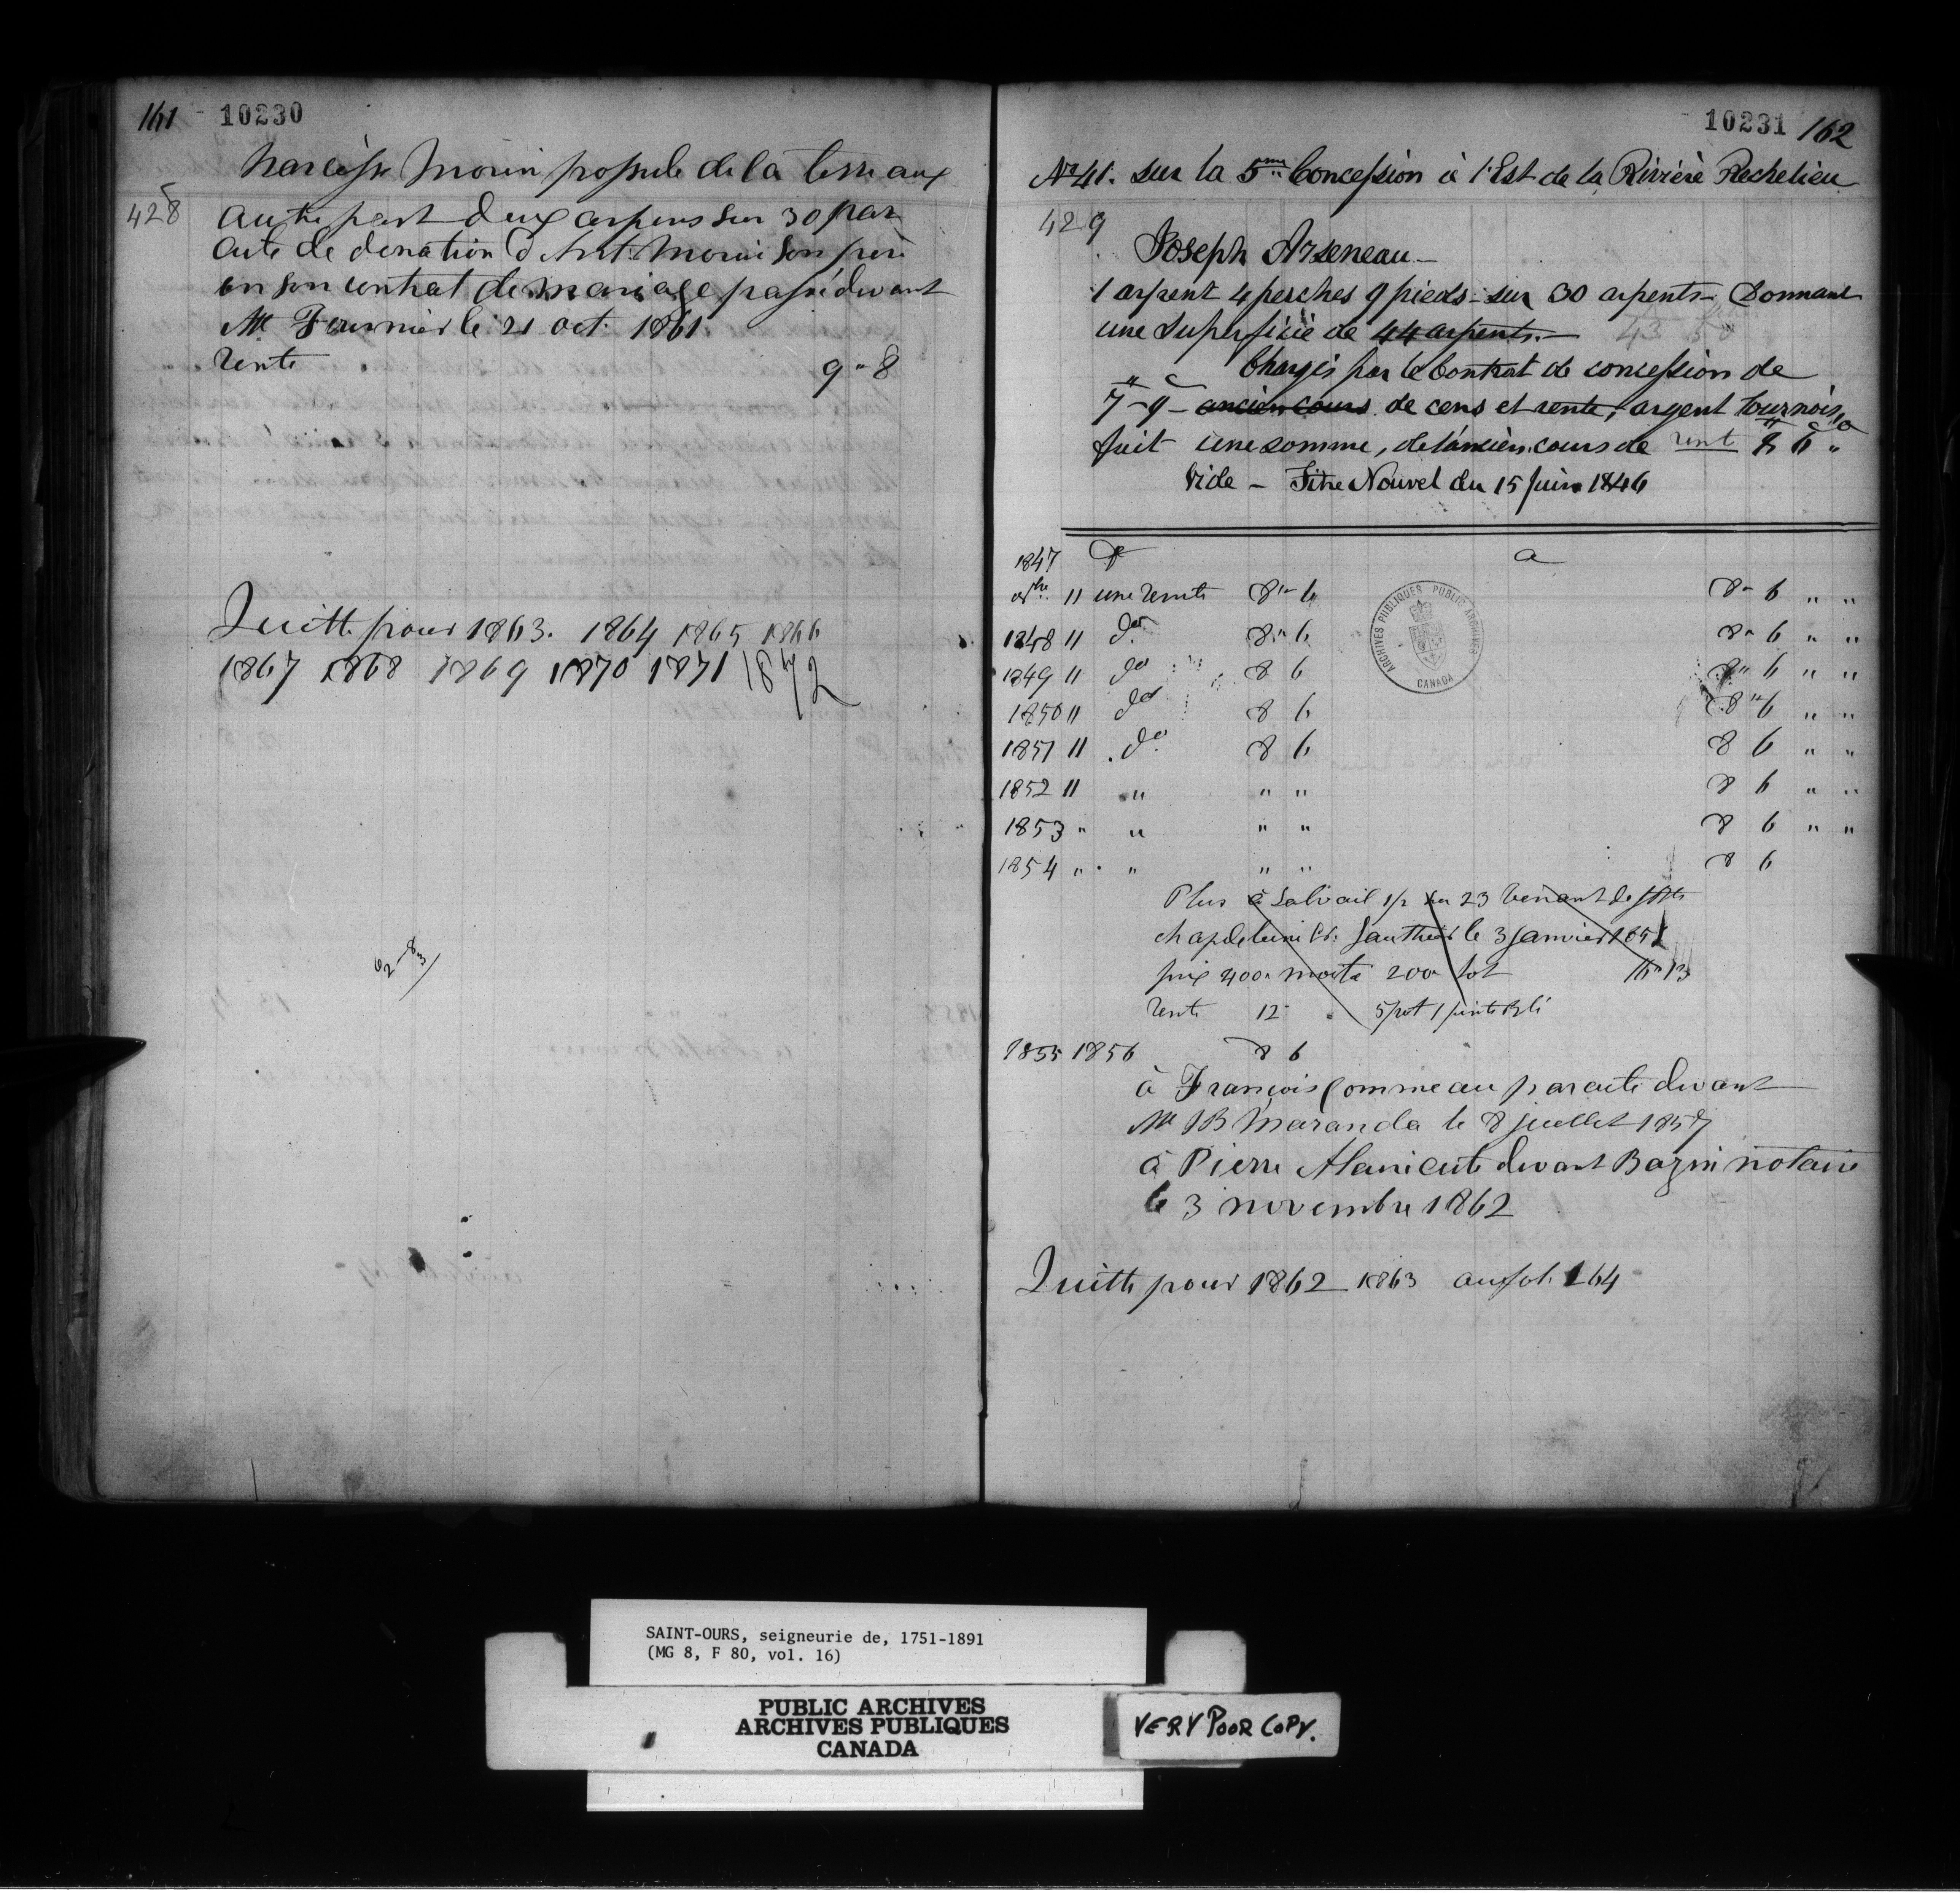 161 10230
Narcisse Morin possede de la terre aux
428 autre part deux arpens sur 30 par
acte de donation d'Ant. Morin son père
en son contrat de mariage passé devant
Me Fournier le 21 oct. 1861
rente 9 " 8
Quitte pour 1863. 1864 1865 1866
1867 1868 1869 1870 1871 1872
62-83
10231 162
No 41. sur la 5me Concession à l'Est de la Rivière Rechelieu
429
Joseph Arseneau —
1 arpent 4 perches 9 pieds - sur 30 arpents - Donnant
une superficie de 44 arpents. — 43 50
Chargés par le Contrat de concession de
7 - 9 - ancien cours de cens et rente, argent tournois,
fait une somme, de l'ancien cours de rent 8 6 "
Vide - Titre Nouvel du 15 Juin 1846
1847
9bre 11 une rente 8 " 6 8 " 6 " "
1848 11 do 8 " 6 8 " 6 " "
1849 11 do 8 6 8 " 6 " "
1850 11 do 8 6 8 " 6 " "
1851 11 do 8 6 8 6 " "
1852 11 " " " 8 6 " "
1853 " " " " 8 6 " "
1854 " " " " 8 6
Plus à Salvail 1/2 sur 23 venant de
chapdelaine le 3 janvier 1851
prix 400 moitié 200 lot 16 " 13
rente 12 5 pot 1 pinte Blé
1855 1856 8 6
à François Commeau par acte devant
Me JB Maranda le 8 juillet 1857
à Pierre Alarie acte devant Bazin notaire
le 3 novembre 1862
Quitte pour 1862 1863 au fol. 164
ARCHIVES PUBLIQUES PUBLIC ARCHIVES
CANADA
SAINT-OURS, seigneurie de, 1751-1891
(MG 8, F 80, vol. 16)
PUBLIC ARCHIVES
ARCHIVES PUBLIQUES
CANADA
VERY POOR COPY.